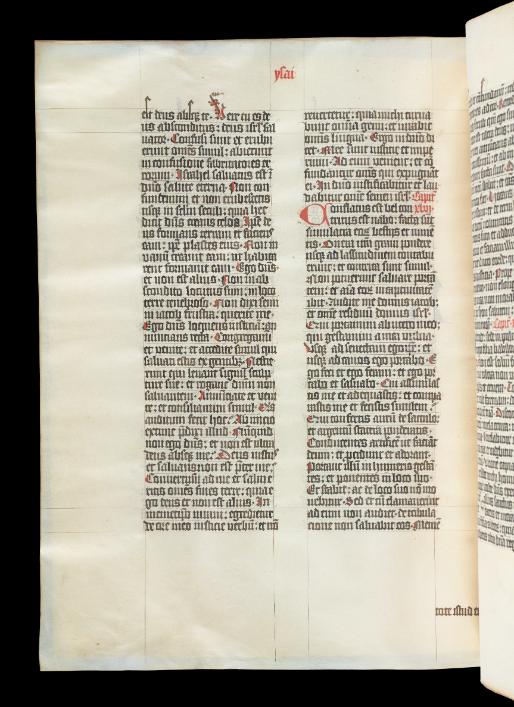 ysai
est deus absq; te. Vere tu es de
us absconditus: deus isrl sal
uator. Confusi sunt et erubu
erunt omēs simul: abierunt
in confusione fabricatores er
rorum. Israhel saluatus est ī
dño salute eterna. Non con
fundemini et non erubescetis
usq; in sclm scli: quia hec
dicit dñs creans celos. Ipse de
us formans terram et faciens
eam: ipē plastes eius. Non in
vanū creauit eam: ut habita
retur formauit eam. Ego dñs
et non est alius. Non in ab
scondito locutus sum: in loco
terre tenebroso. Non dixi semi
ni iacob frustra: querite me.
Ego dñs loquens iusticiā: an
nuncians recta. Congregamini
et venite: et accedite simul qui
saluati estis ex gentib;. Nescie
runt qui leuant signū sculp
ture sue: et rogant deum non
saluantem. Annūciate et veni
te: et consiliamini simul. Quis
auditum fecit hoc: Ab inicio
extunc p̄dixi illud. Nunqͥd
non ego dñs: et non est ultra
deus absq; me: Deus iustus
et saluans non est p̄ter me.
Conuertimini ad me et salui e
ritis omēs fines terre: quia e
go deus et non est alius. In
memetipō iuraui: egredietur
de ore meo iusticie verbū: et nō
reuertetur: quia michi curua
bitur omne genu: et iurabit
omīs lingua. Ergo in dño di
cet. Mee sunt iusticie et impe
rium. Ad eum venient: et cō
fundentur omēs qui repugnāt
ei. In dño iustificabitur et lau
dabitur omne semen isrl. Capłm
Confractus est bel con xlvi
tritus est nabo: facta sūt
simulacra eoꝝ bestijs et iumē
tis. Onera vrā graui pondere
usq; ad lassitudinem contabu
erunt: et contrita sunt simul.
Non potuerunt saluare portā
tem: et aīa eoꝝ in captiuitatē
ibit. Audite me domus iacob:
et omē residuū domus isrl.
Qui portamini ab utero meo:
qui gestamini a mea vulua.
Usq; ad senectam ego ip̄e: et
usq; ad canos ego portabo. E
go feci et ego feram: et ego por
tabo et saluabo. Cui assimilas
tis me et adequastis: et compa
rastis me et fecistis similem:
Qui confertis aurū de sacculo:
et argentū statera ponderatis.
Conducentes aurificē ut faciat
deum: et procidunt et adorant.
Portant illū in humeris gestā
tes: et ponentes in loco suo.
Et stabit: ac de loco suo nō mo
uebitur. Sed et cū clamauerint
ad eum non audiet: de tribula
cione non saluabit eos. Memē